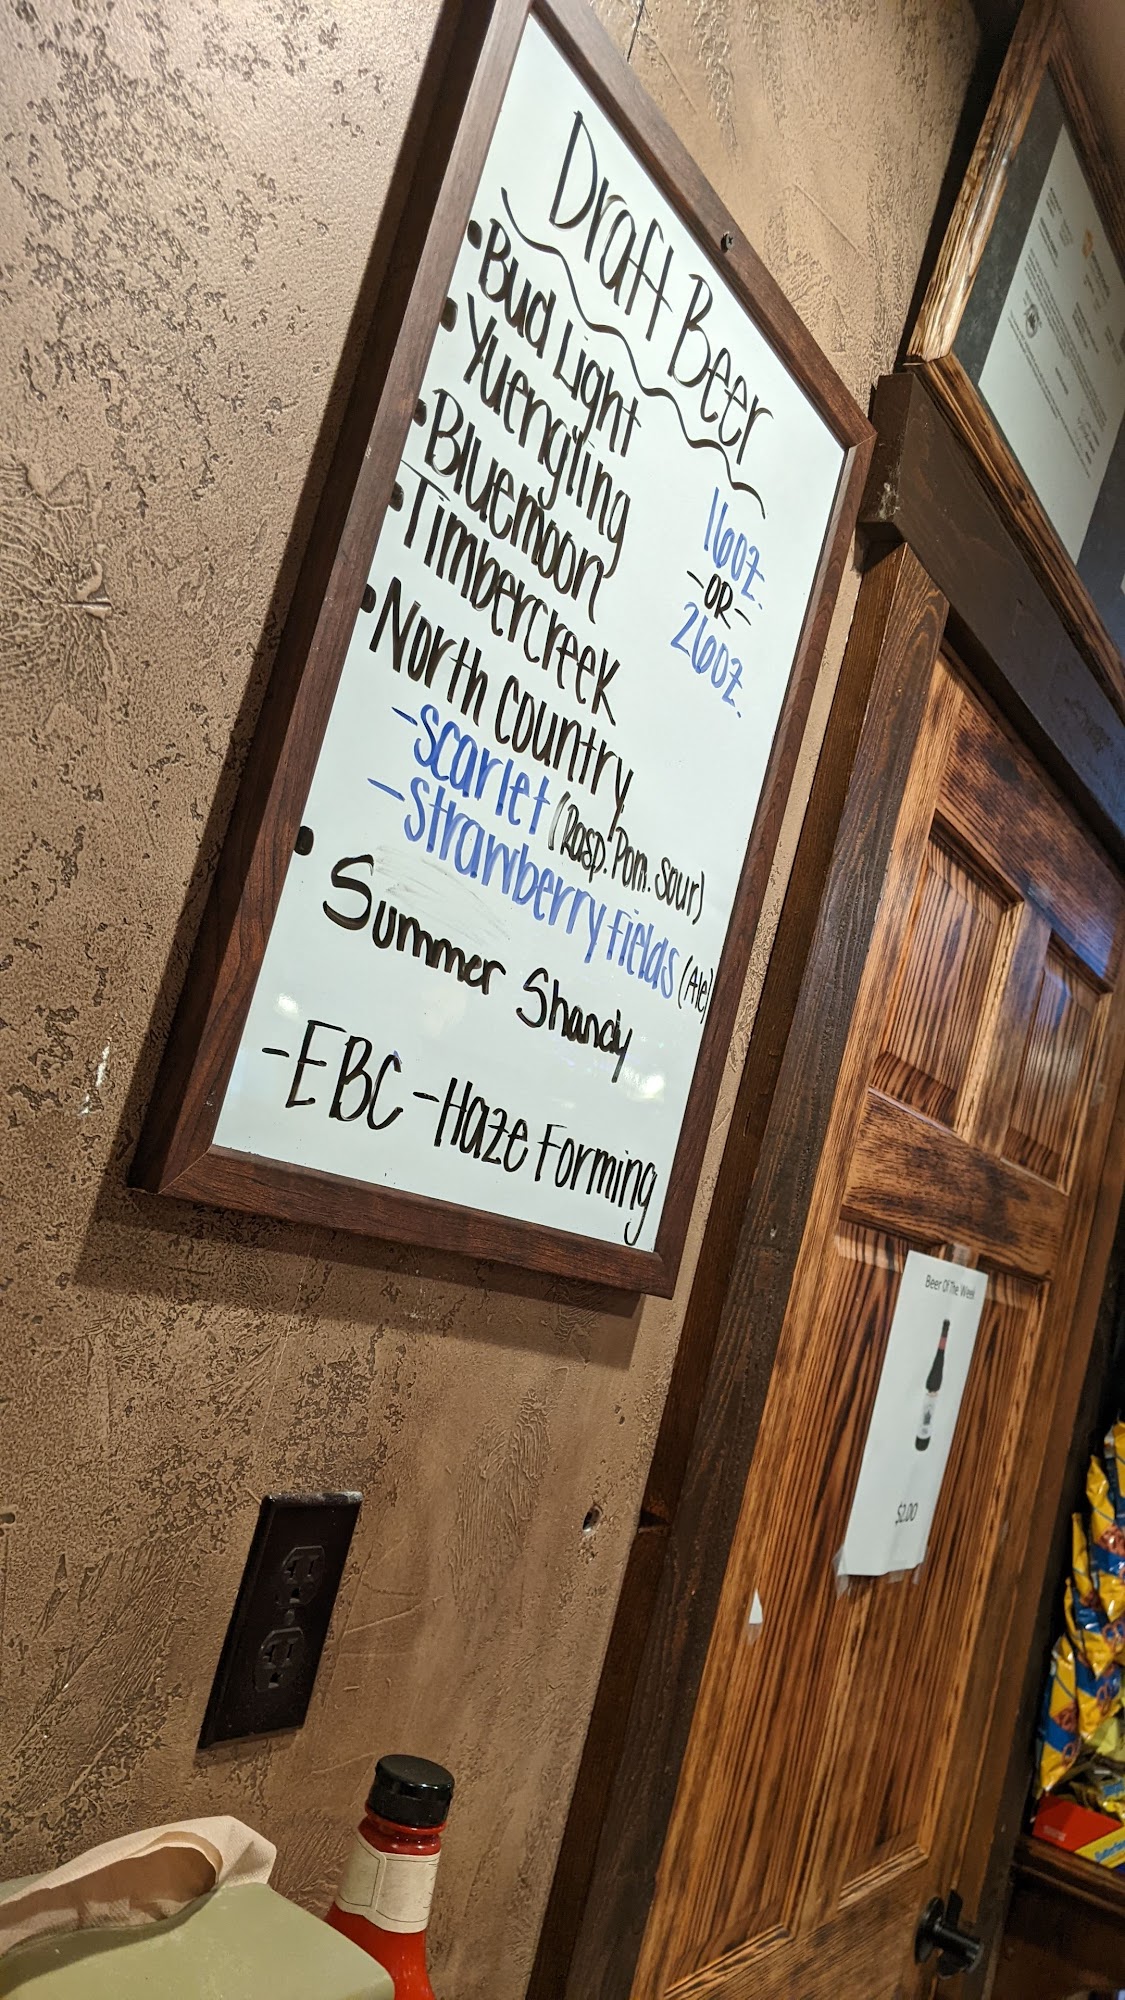 Draft Beer
• Bud Light
• Yuengling
• Bluemoon
• Timbercreek
• North Country
- Scarlet (Rasp. Pom. Sour)
- Strawberry Fields (Ale)
• Summer Shandy
- EBC - Haze Forming
16oz.
- OR -
26oz.
Beer Of The Week
$2.00